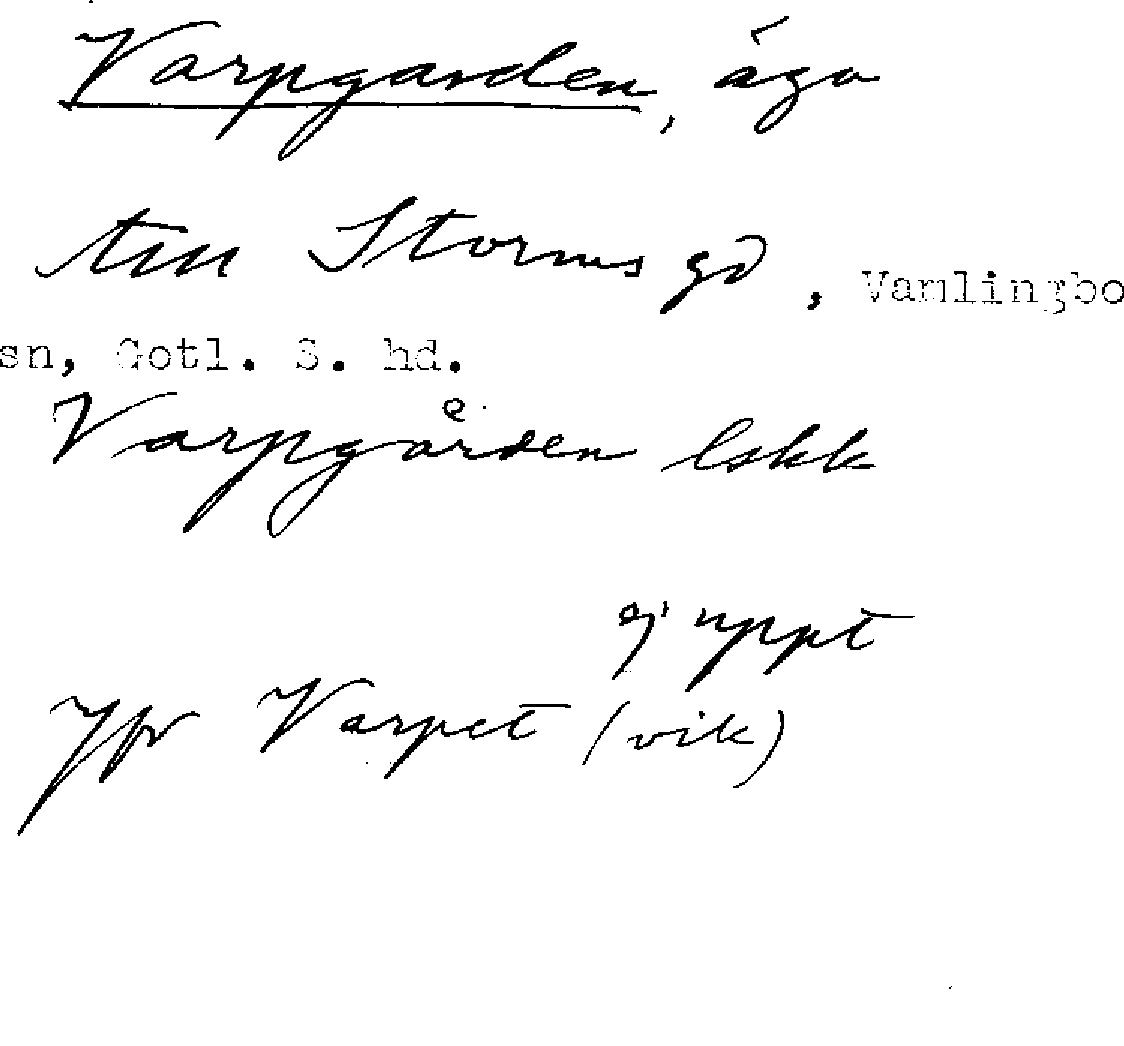 Varpgarden, äga
till Storms gd, Vamlingbo
sn, Gotl. S. hd.
Varpgården lskk
ej uppt
Jfr Varpet (vik)